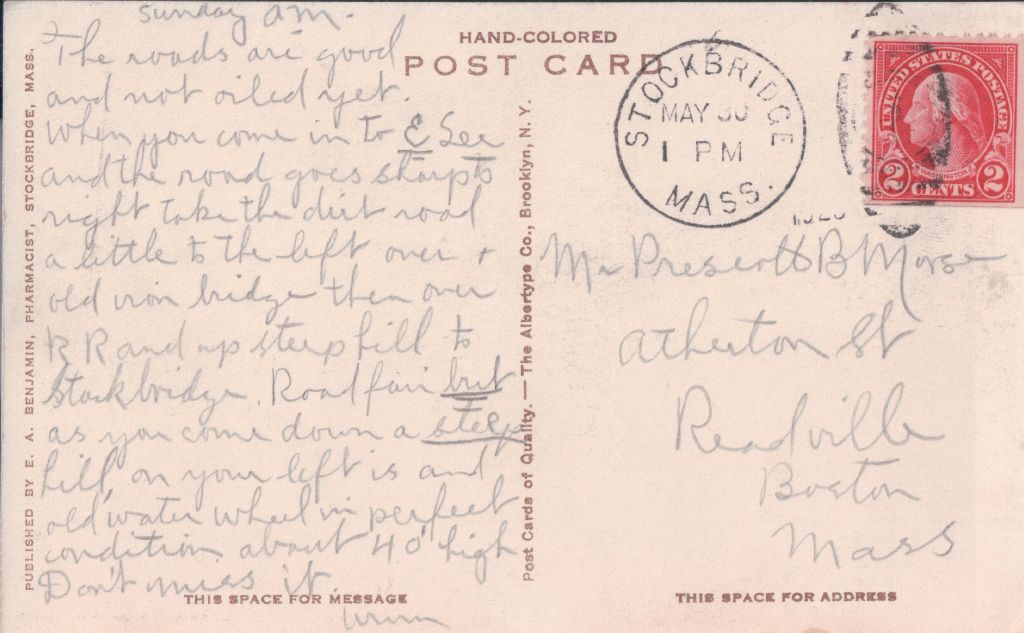 Sunday am.
The roads are good
and not oiled yet.
When you come in to E Lee
and the road goes sharp to
right take the dirt road
a little to the left over
old iron bridge then over
R R and up steep hill to
Stockbridge. Road fair but
as you come down a steep
hill, on your left is and
old water wheel in perfect
condition about 40' high
Don't miss it.
THIS SPACE FOR MESSAGE
PUBLISHED BY E. A. BENJAMIN, PHARMACIST, STOCKBRIDGE, MASS.
HAND-COLORED
POST CARD
Post Cards of Quality. — The Albertype Co., Brooklyn, N. Y.
STOCKBRIDGE
MAY 30
1 PM
MASS.
UNITED STATES POSTAGE
WASHINGTON
2 CENTS 2
Mr Prescott B Morse
Atherton St
Readville
Boston
Mass
THIS SPACE FOR ADDRESS